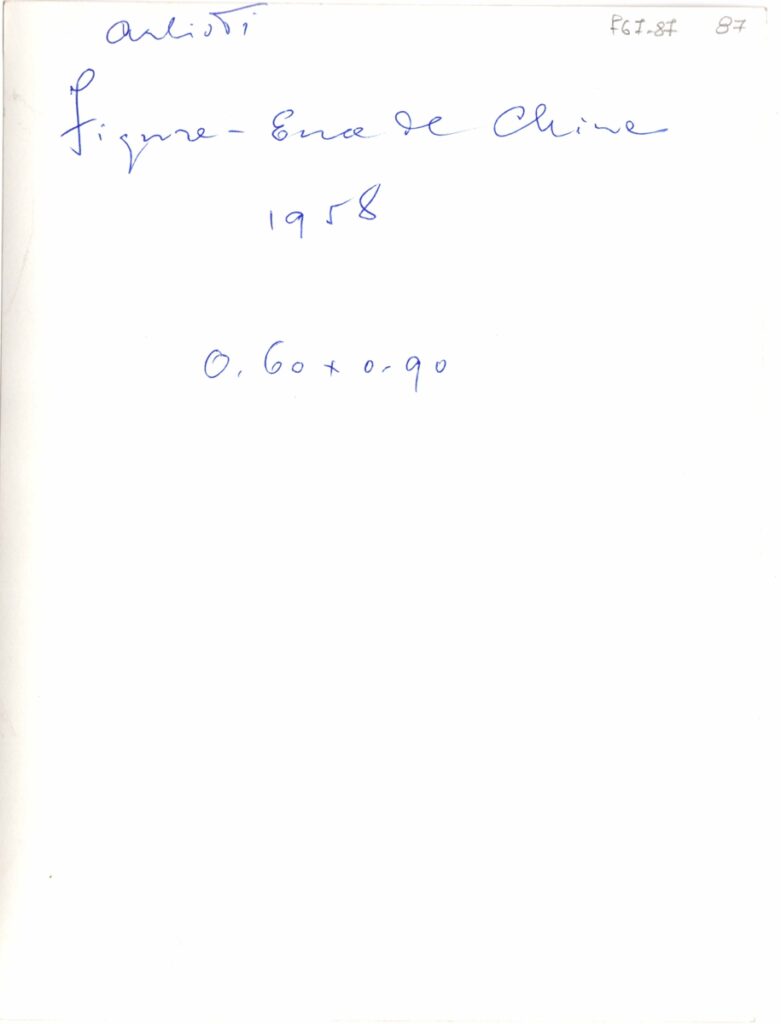 Arlioti F67-87 87
Figure - Encre de Chine
1958
0.60 x 0.90